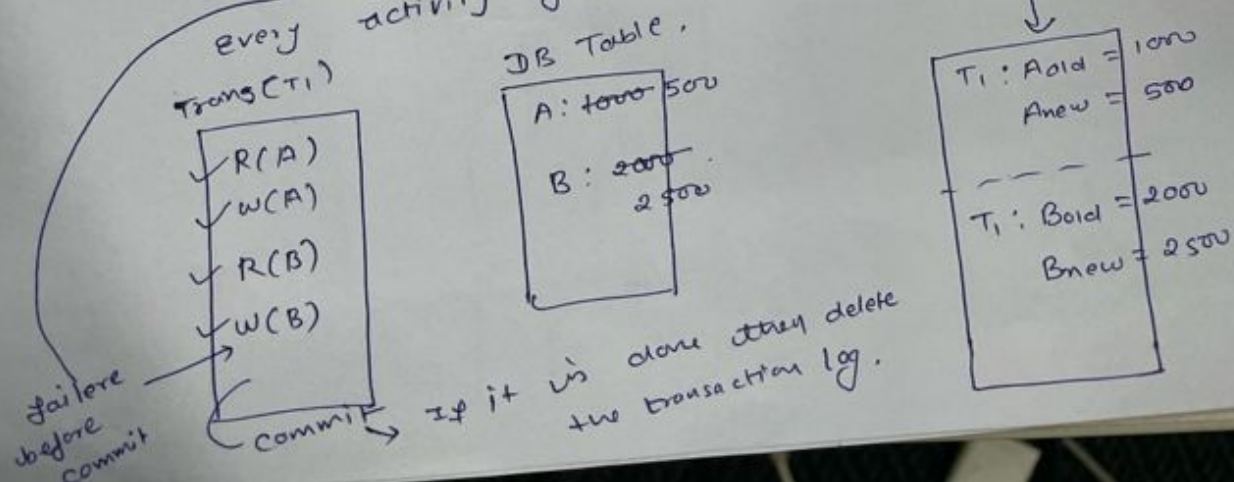 every activity
Trans(T1)
R(A)
W(A)
R(B)
W(B)
failere
before
commit
commit → If it is done then delete
the transaction log.
DB Table.
A: 1000 500
B: 2000
2500
T1: Aold = 1000
Anew = 500
T1: Bold = 2000
Bnew = 2500